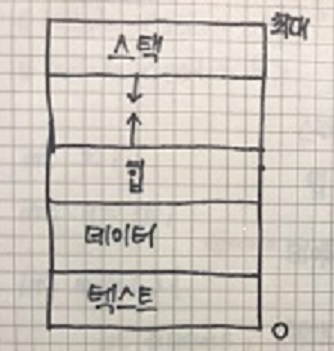 최대
스택
힙
데이터
텍스트
0